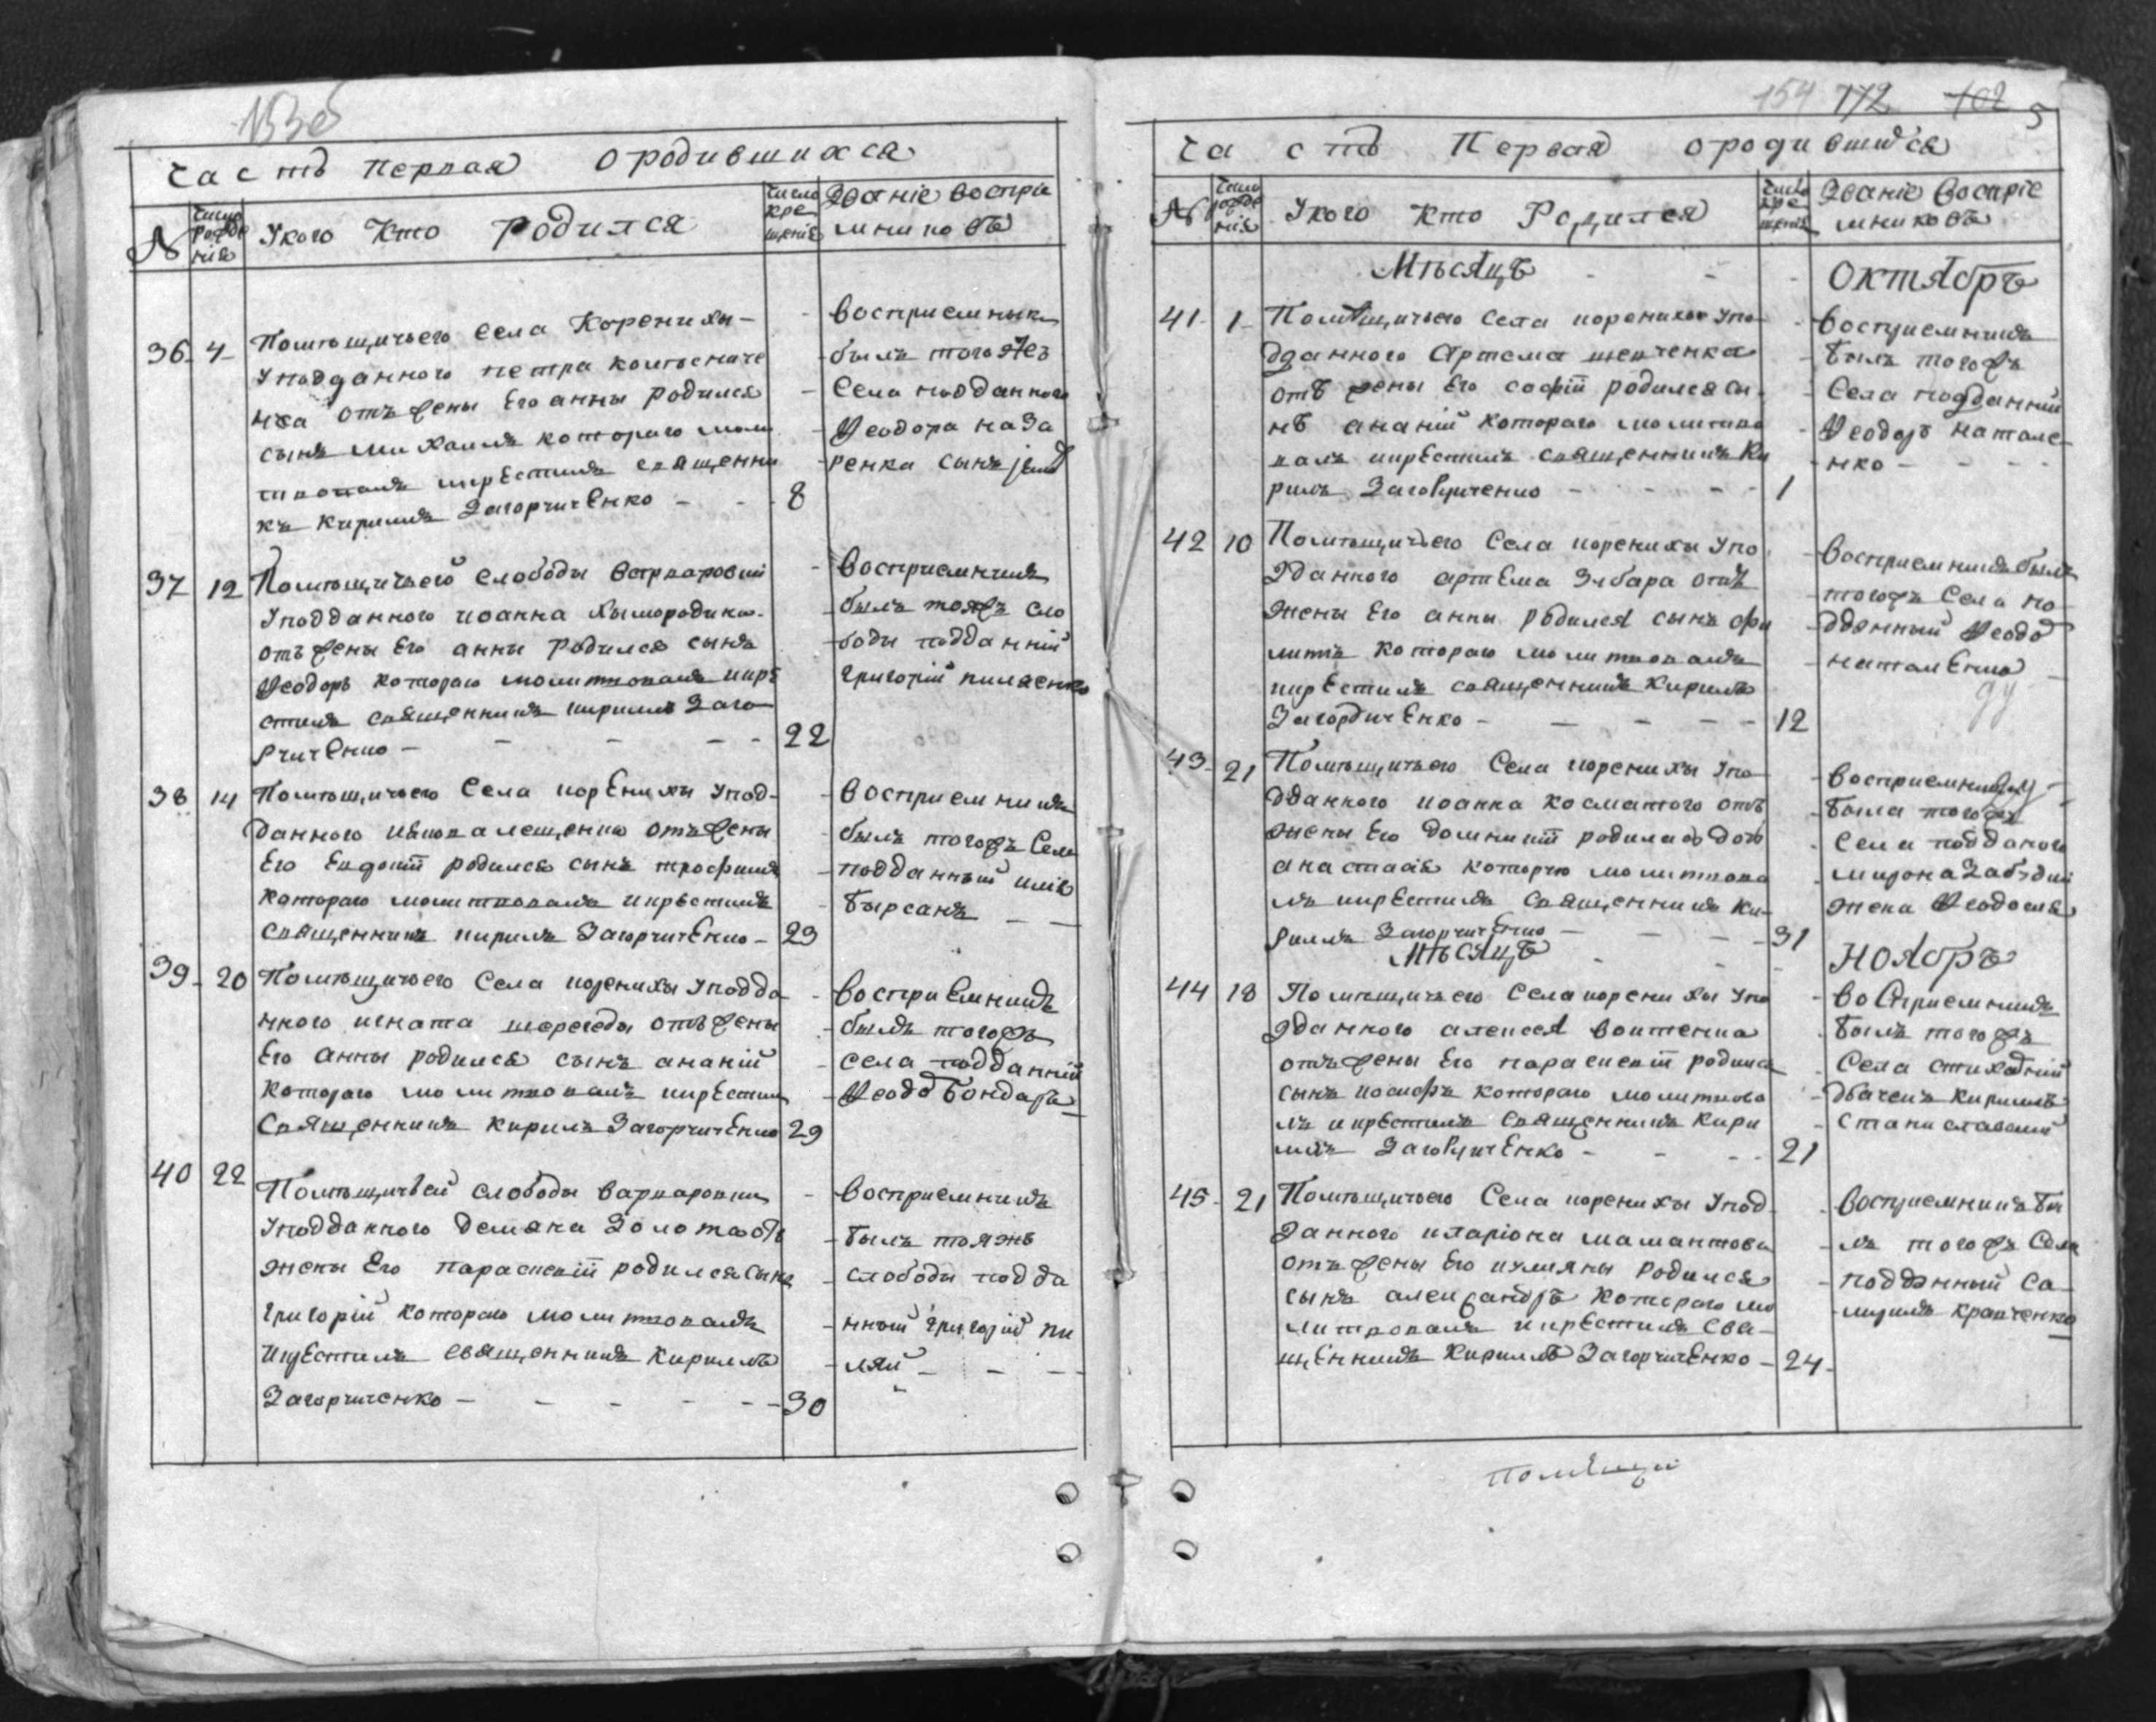 153об
часть первая ородившихся
№
число рожде ния
Укого Кто родился
число кре щенія
Званіе воспріе мниковъ
36 4 Помѣщичьего села Коренихи
Уподданного петра колѣсниче
нка отъ жены Его анны родился
сынъ михаилъ которого моли
твовалъ икрестилъ священни
къ Кирилъ ЗагорчичЕнко - - 8
восприемникъ
былъ тогожъ
Села подданного
Ѳеодора наза
ренка сынъ
37 12 Помѣщичьей слободы Варваровки
Уподданного иоанна
отъ жены Его анны родился сынъ
Ѳеодоръ которого молитвовалъ икре
стилъ священникъ кирилъ Заго
рчичЕнко - - - - 22
Восприемникъ
былъ тояжъ сло
боды подданній
григорій пиляЕнко
38 14 Помѣщичьего Села корЕнихи Упод-
данного отъ жены
Его Евдокіи родился сынъ трофимъ
которого молитвовалъ икрестилъ
священникъ кирилъ ЗагорчичЕнко - 23
Восприемникъ
былъ тогожъ Села
подданный
Бырсанъ - -
39 20 Помѣщичьего Села коренихи Уподда
нного игната шереседы отъ жены
Его анны родился сынъ ананій
которого молитвовалъ икрестилъ
Священникъ кирилъ ЗагорчичЕнко 29
ВосприЕмникъ
былъ тогожъ
села подданній
Ѳеодо Бондарь
40 22 Помѣщичьей слободы варваровки
Уподданного демяна Золота отъ
жены Его параскевіи родился сынъ
григорій которого молитвовалъ
икрЕстилъ священникъ Кириллъ
Загорчиченко - - - - - 30
Восприемникъ
былъ тояжъ
слободы подда
нный григорій пи
ляй - - -
154 172 102 5
часть Первая ородившихся
№
число рожде нія
Укого Кто Родился
число кре щенія
Званіе Воспріе мниковъ
Мѣсяцъ - - - Октябръ
41 1 Помѣщичьего села коренихи Упо
дданного Артема шевченка
отъ жены Его софіи родился сы
нъ ананій которого молитво
валъ икрЕстилъ священникъ Ки
рилъ Загорчиченко - - - - 1
Восприемникъ
былъ тогожъ
Села подданный
Ѳеодоръ натале
нко - - -
42 10 Помѣщичьего Села коренихи Упо
дданного артЕма Зябара отъ
жены Его анны родился сынъ фи
липъ которого молитвовалъ
икрЕстилъ священникъ Кирилъ
ЗагорчичЕнко - - - - 12
Восприемникъ былъ
тогожъ Села по
дданный Ѳеодо
наталЕнко
43 21 Помѣщичьего Села коренихи Упо
дданного иоанна косматого отъ
жены Его домникіи родилась дочь
анастасія которую молитвова
лъ икрЕстилъ священникъ Ки
рилъ ЗагорчичЕнко - - - 31
восприемницу
была тогожъ
села подданого
мирона
жена Ѳеодосия
Мѣсяцъ - - - Ноябръ
44 18 Помѣщичьего села коренихи Упо
дданного алексея воитенка
отъ жены Его параскевіи родился
сынъ иосифъ которого молитвова
лъ икрестилъ священникъ Кири
лъ ЗагорчичЕнко - - - 21
восприемникъ
былъ тогожъ
Села стихарній
дьячекъ Кириллъ
станиславский
45 21 Помѣщичьего Села коренихи Упод
данного иларіона мамантова
отъ жены Его иулияны родился
сынъ александръ которого мо
литвовалъ икрЕстилъ свя-
щЕнникъ Кириллъ ЗагорчичЕнко - 24
Восприемникъ бы
лъ тогожъ Села
подданный са
муилъ кравченко
помЕщи